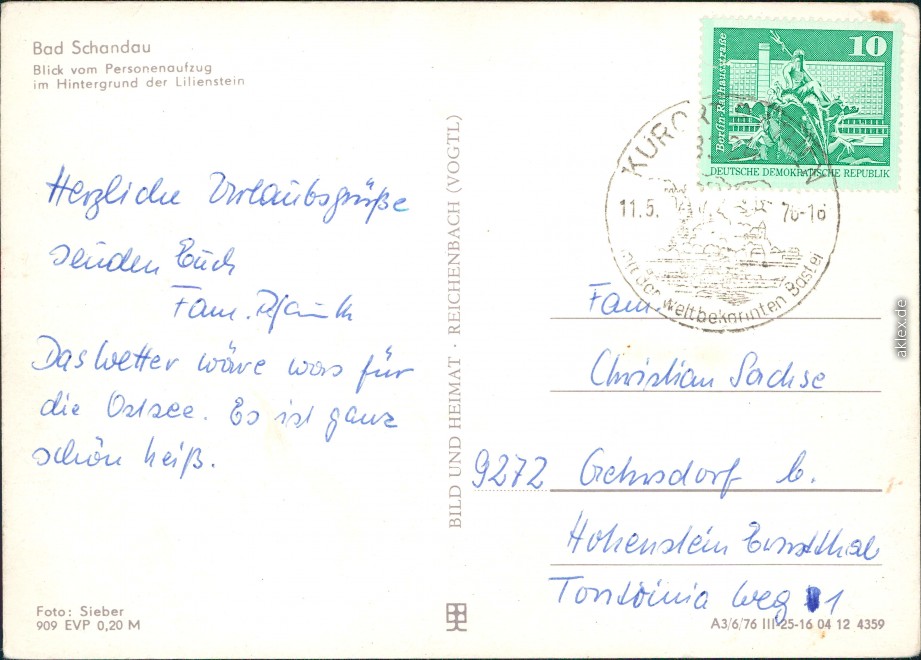 Bad Schandau
Blick vom Personenaufzug
im Hintergrund der Lilienstein
Herzliche Urlaubsgrüße
senden Euch
Fam.
Das Wetter wäre was für
die Ostsee. Es ist ganz
schön heiß.
Foto: Sieber
909 EVP 0,20 M
BILD UND HEIMAT · REICHENBACH (VOGTL)
10
Berlin-Rathausstraße
DEUTSCHE DEMOKRATISCHE REPUBLIK
KURORT
11.5. 76-16
mit der weltbekannten Bastei
Fam.
Christian Sachse
9272 Gersdorf b.
Hohenstein Ernstthal
Weg 1
A3/6/76 III-25-16 04 12 4359
aklex.de